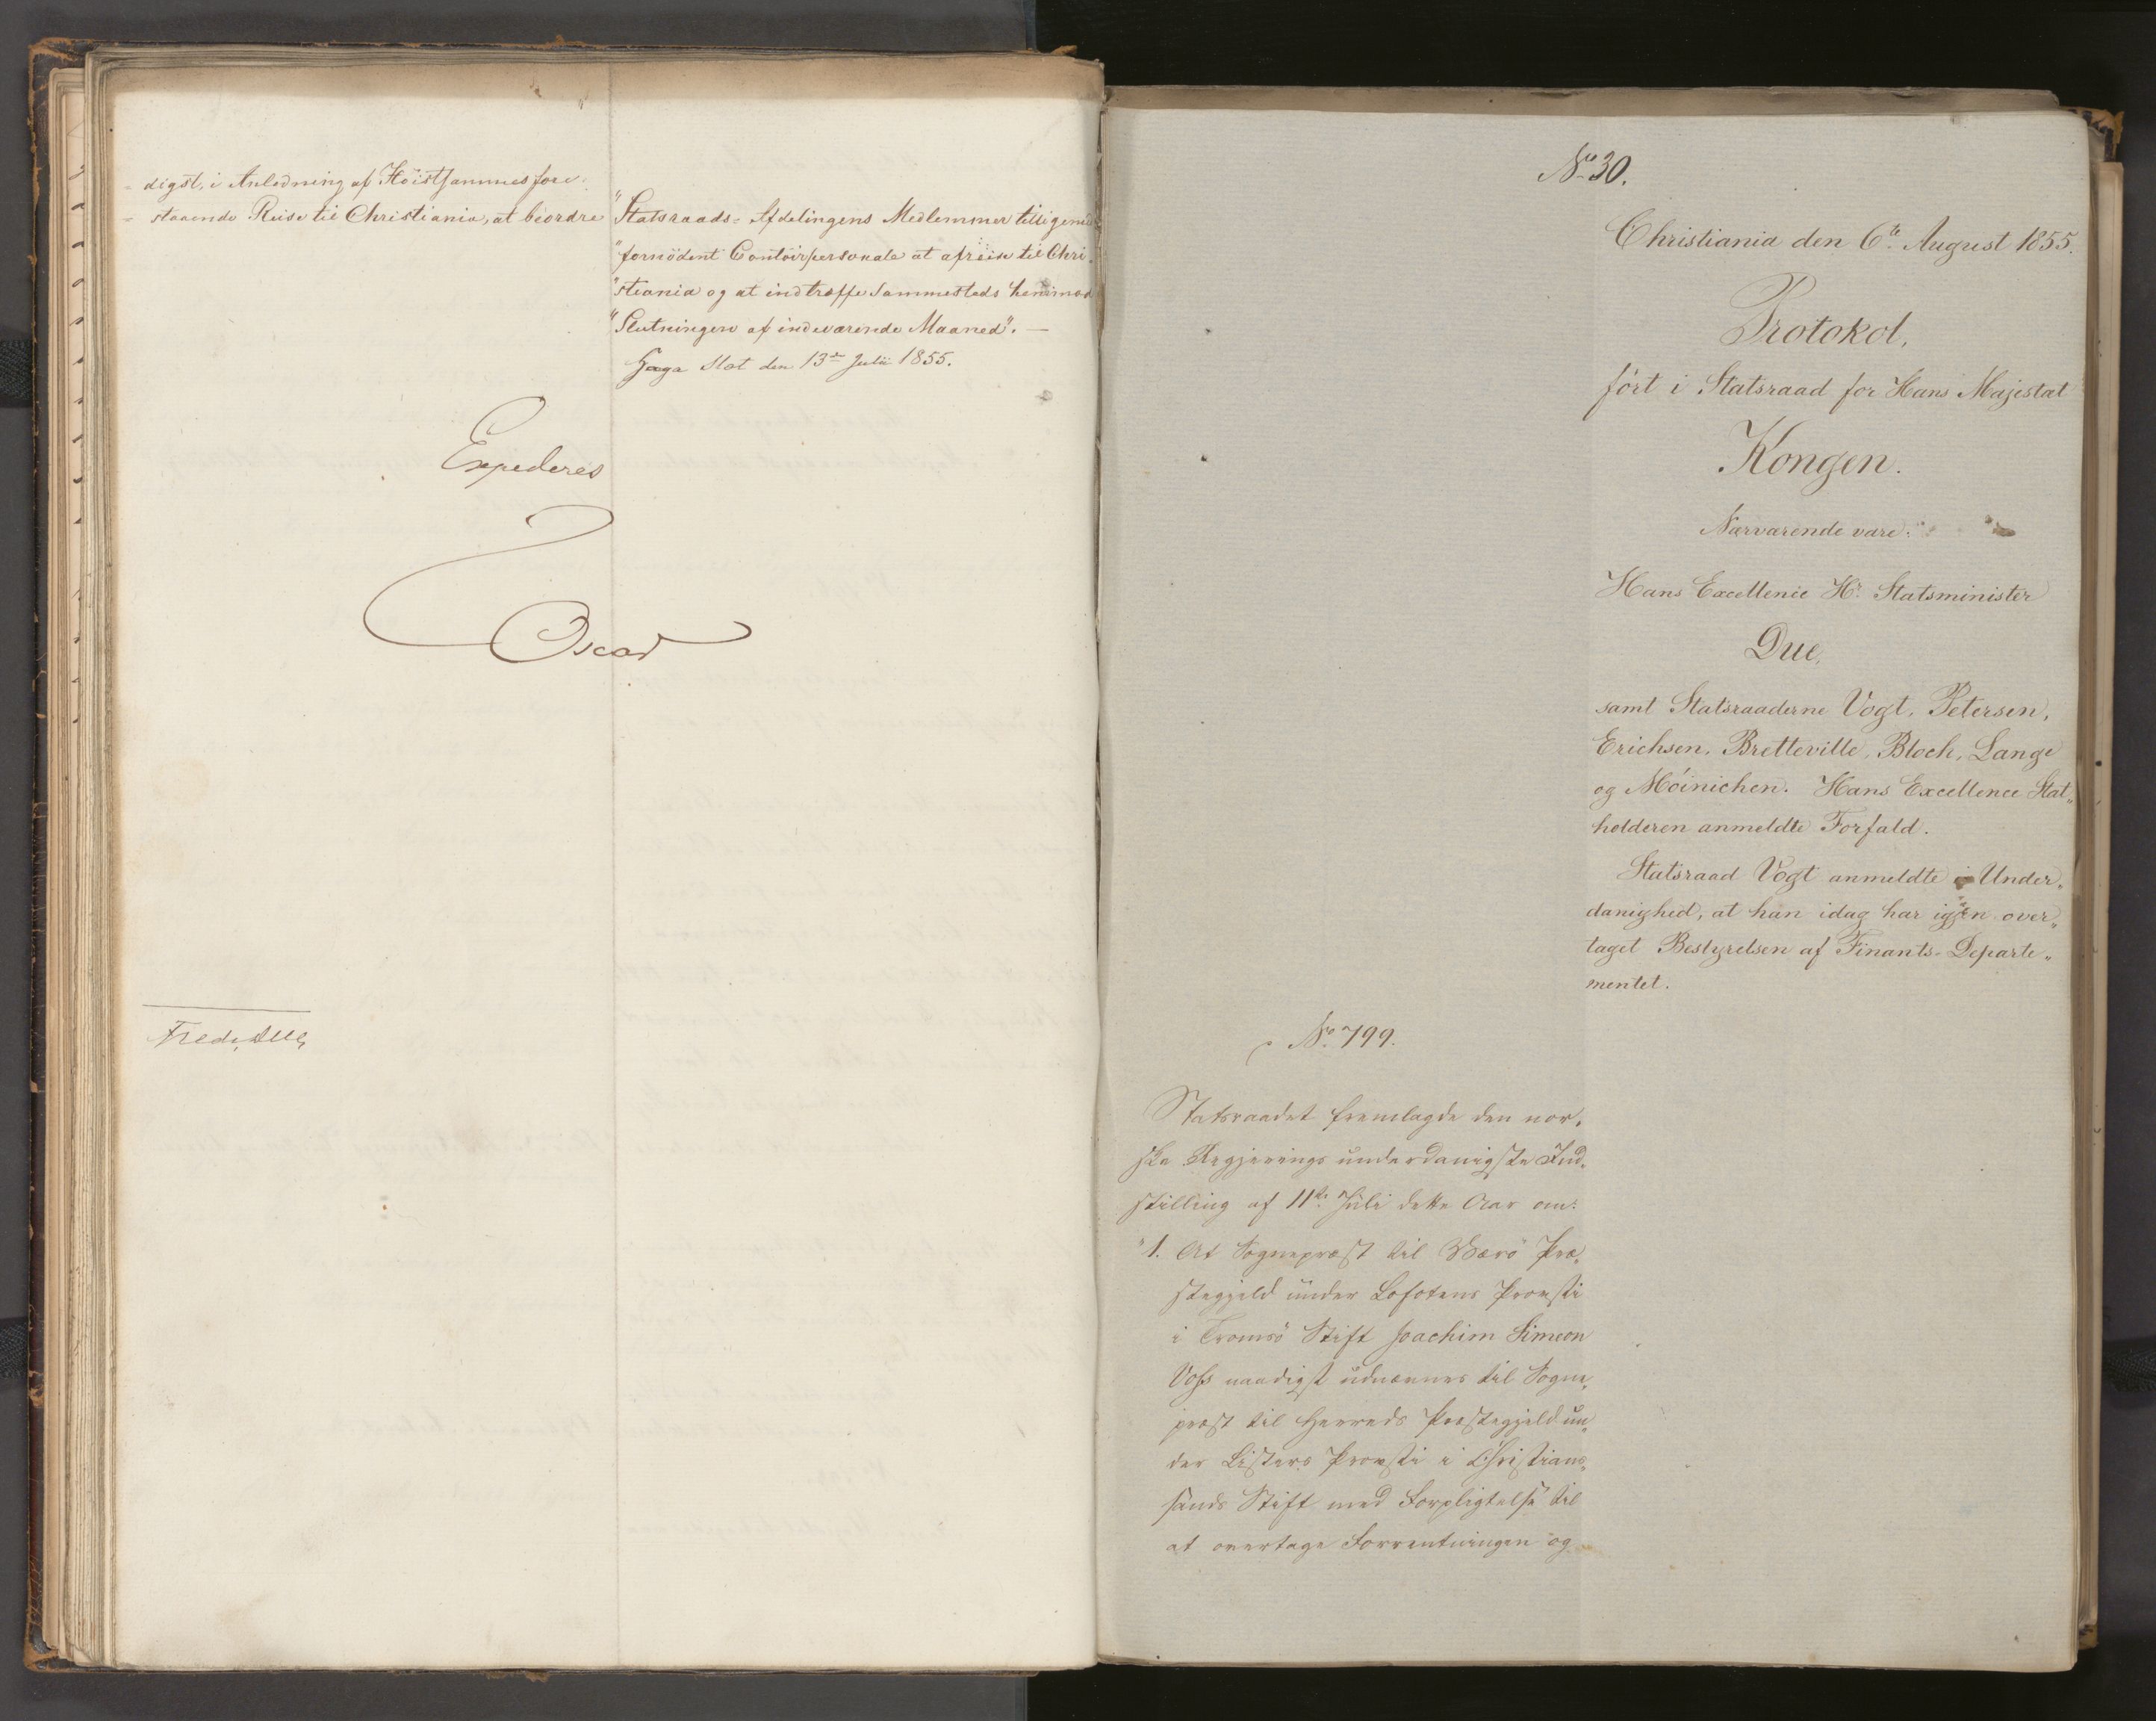 digst, i Anledning af Höistsammes fore-
staaende Reise til Christiania, at beordre
"Statsraads-Afdelingens Medlemmer tilligemed
"fornödent Contoirpersonale at afreise til Chri-
"stiania og at indtræffe sammesteds henimod
"Slutningen af indeværende Maaned". —
Haga Slot den 13de Julii 1855.
Expederes
Oscar
Fred. Due
No 30.
Christiania den 6te August 1855.
Protokol,
fört i Statsraad for Hans Majestæt
Kongen.
Nærværende vare:
Hans Excellence Hr. Statsminister
Due,
samt Statsraaderne Vogt, Petersen,
Erichsen, Bretteville, Bloch, Lange
og Möinichen. Hans Excellence Stat„
holderen anmeldte Forfald.
Statsraad Vogt anmeldte i Under„
danighed, at han idag har igjen over„
taget Bestyrelsen af Finants-Departe„
mentet.
No 799.
Statsraadet fremlagde den nor„
ske Regjerings underdanigste Ind„
stilling af 11te Juli dette Aar om:
"1. At Sognepræst til Værö Præ„
stegjeld under Lofotens Provsti
i Tromsö Stift Joachim Simeon
Voss naadigst udnævnes til Sogne„
præst til Herreds Præstegjeld un„
der Listers Provsti i Christians„
sands Stift med Forpligtelse til
at overtage Forrentningen og